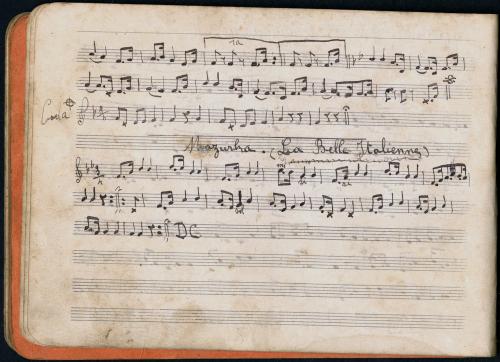 1a
Coda
Mazurka. (La Belle Italienne)
DC